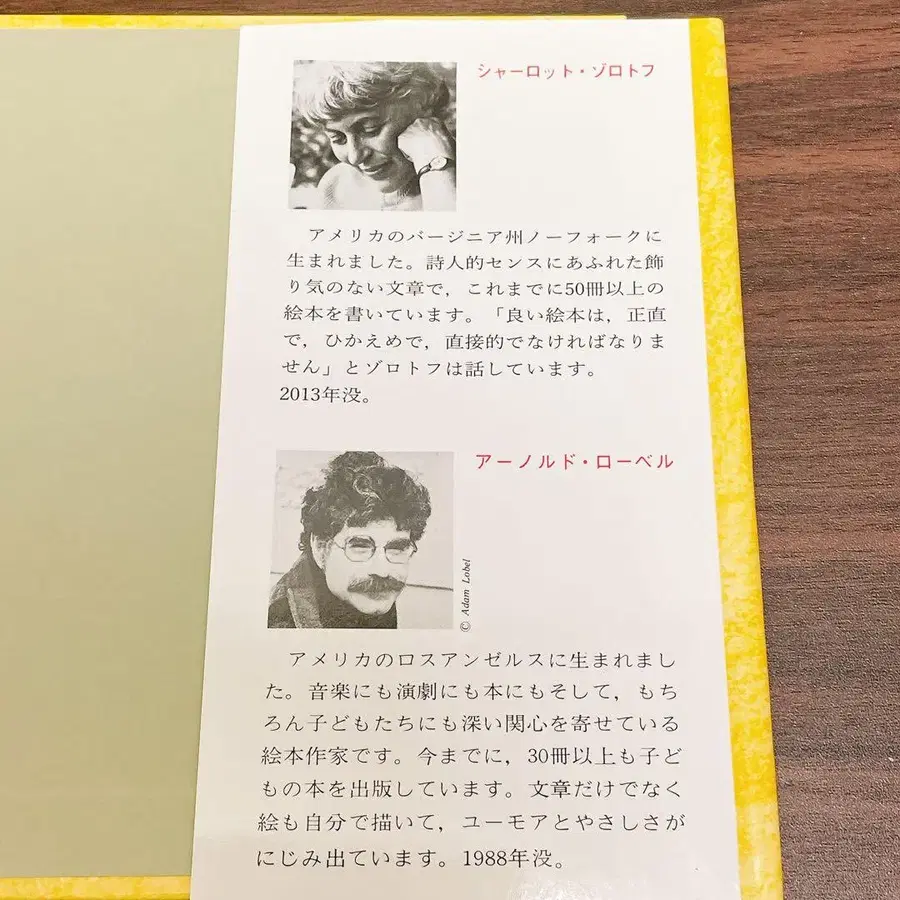 シャーロット・ゾロトフ
アメリカのバージニア州ノーフォークに
生まれました。詩人的センスにあふれた飾
り気のない文章で，これまでに50冊以上の
絵本を書いています。「良い絵本は，正直
で，ひかえめで，直接的でなければなりま
せん」とゾロトフは話しています。
2013年没。
アーノルド・ローベル
© Adam Lobel
アメリカのロスアンゼルスに生まれまし
た。音楽にも演劇にも本にもそして，もち
ろん子どもたちにも深い関心を寄せている
絵本作家です。今までに，30冊以上も子ど
もの本を出版しています。文章だけでなく
絵も自分で描いて，ユーモアとやさしさが
にじみ出ています。1988年没。